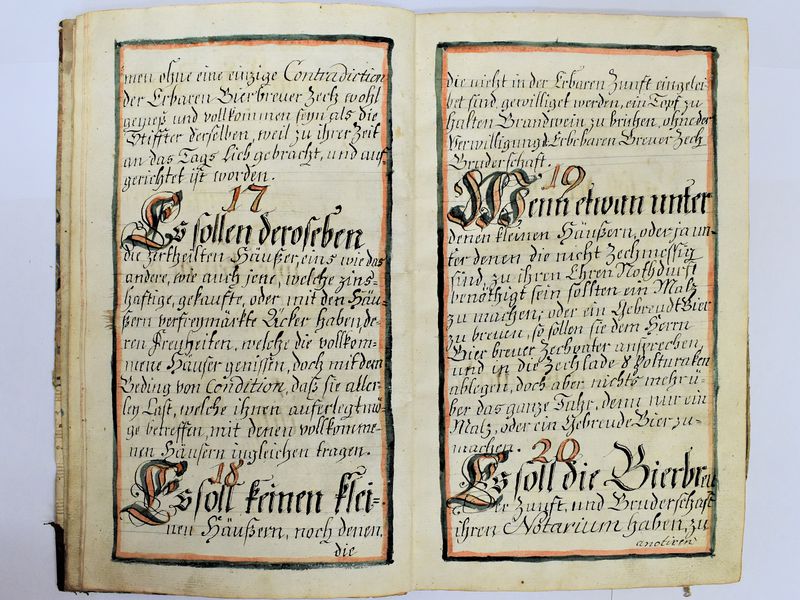 men ohne eine einzige Contradiction
der Erbaren Bierbreuer Zech wohl
genieß und vollkommen seyn als die
Stiffter derselben, weil zu ihrer Zeit
an das Tags Liecht gebracht, und auf-
gerichtet ist worden.
17
Es sollen deroselben
die zertheilten Häußer, eins wie das
andere, wie auch jene, welche zins-
hafftige, gekaufte, oder mit den Häu-
ßern verfreymärkte Äcker haben, de-
ren Freyheiten, welche die vollkom-
mene Häuser genissen, doch mit dem
Beding von Condition, daß sie aller-
ley Last, welche ihnen auferlegt mö-
ge betreffen, mit denen vollkomme-
nen Häusern ingleichen tragen.
18
Es soll keinen klei-
nen Häußern, noch denen,
die
die nicht in der Erbaren Zunft eingelei-
bet sind, gewilliget werden, ein Topf zu
halten Brandwein zu brühen, ohne der
Verwilligung d. Erbebaren Breuer Zech
Bruderschaft.
19
Wenn etwan unter
denen kleinen Häußern, oder ja un-
ter denen die nicht Zechmessig
sind, zu ihren Ehren Nothdurft
benöthigt sein sollten ein Maltz
zu machen; oder ein Gebreudt Bier
zu breuen, so sollen sie dem Herrn
Bier breuer Zechvater ansprechen,
und in die Zechlade 8 Polturaken
ablegen, doch aber nichts mehr ü-
ber das ganze Jahr, denn nur ein
Maltz, oder ein Gebreude Bier zu-
machen.
20
Es soll die Bierbreu
er Zunft, und Bruderschaft
ihren Notarium haben, zu
anotiren